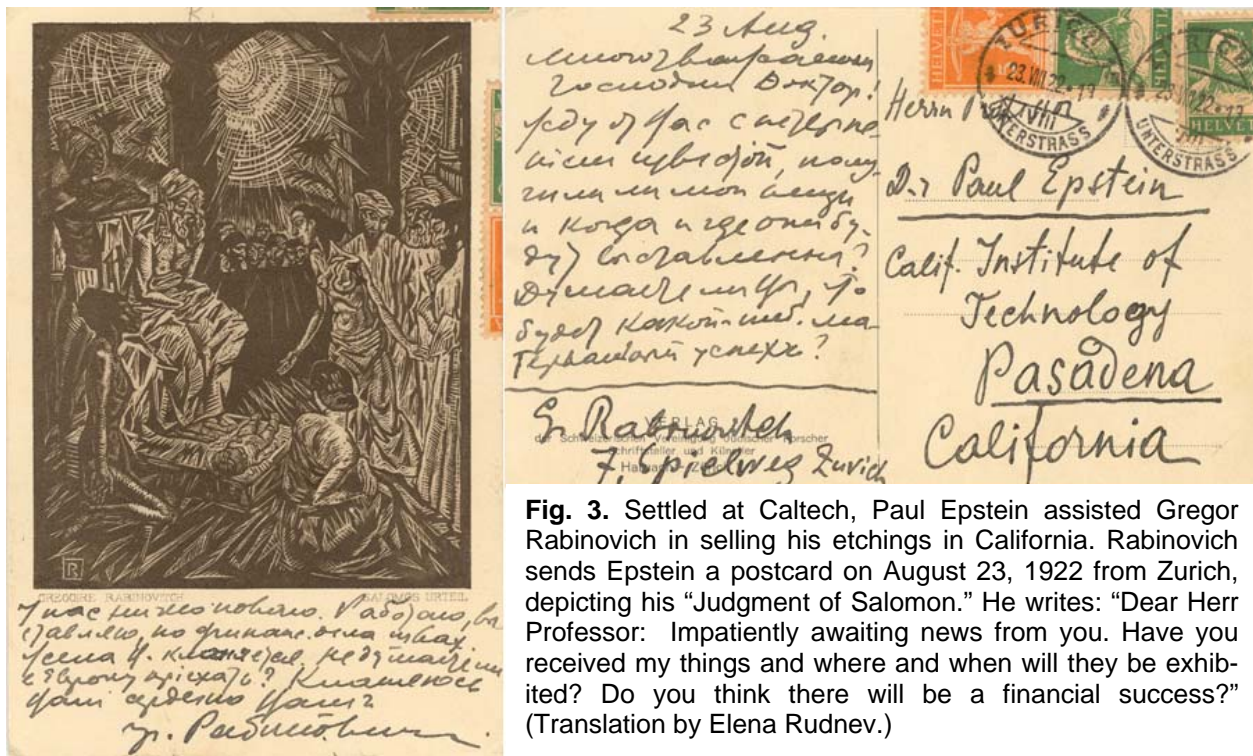 GREGOIRE RABINOVITCH SALOMOS URTEIL
У нас ничего нового. Работаю, вы
ставляю, но финанс. дела швах
кланяется. Не думаете ли
в Европу приехать? Кланяюсь
Вам сердечно Ваш
Гр. Рабинович
23 Aug.
Многоуважаемый
Господин Доктор!
Жду от Вас с нетерпе-
нием известий, полу-
чили ли мои вещи
и когда и где они бу-
дут выставлены?
Думаете ли Вы, что
будет какой-ниб. ма-
териальный успех?
G. Rabinovitch
Zurich
VERLAG
der Schweizerischen Vereinigung Jüdischer Forscher
Schriftsteller und Künstler
Zürich
HELVETIA
HELVETIA
ZÜRICH
23.VIII.22
VIII
UNTERSTRASS
ZÜRICH
23.VIII.22
UNTERSTRASS
Herrn
Dr Paul Epstein
Calif. Institute of
Technology
Pasadena
California
Fig. 3. Settled at Caltech, Paul Epstein assisted Gregor
Rabinovich in selling his etchings in California. Rabinovich
sends Epstein a postcard on August 23, 1922 from Zurich,
depicting his “Judgment of Salomon.” He writes: “Dear Herr
Professor: Impatiently awaiting news from you. Have you
received my things and where and when will they be exhib-
ited? Do you think there will be a financial success?”
(Translation by Elena Rudnev.)